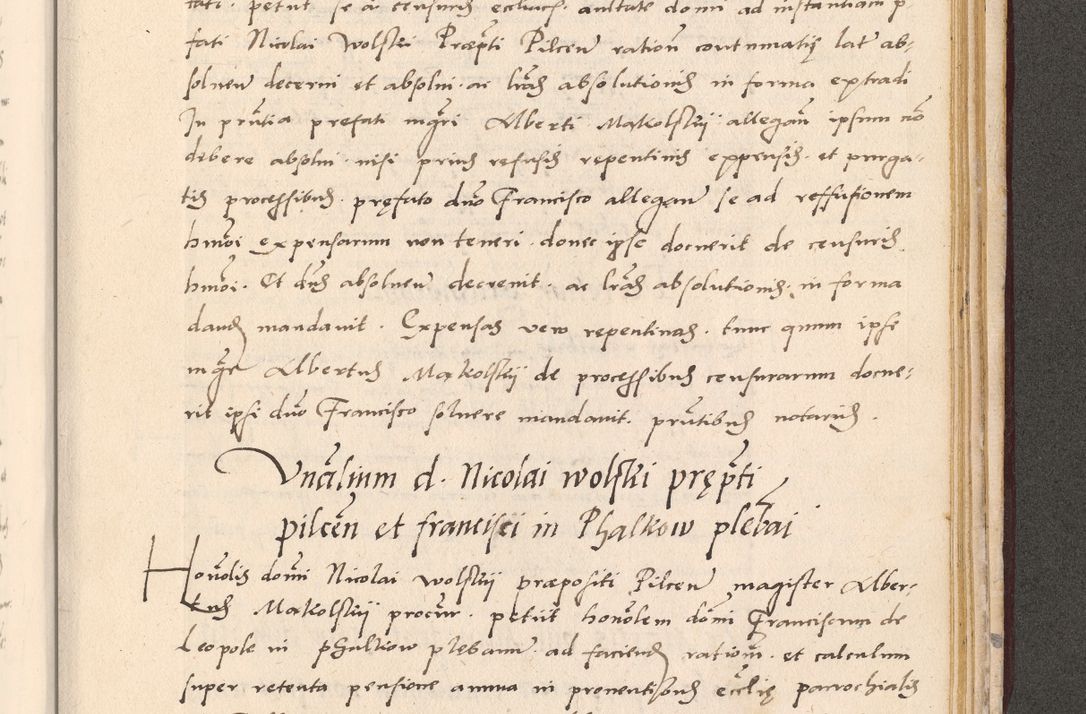 fati Nicolai Wolski Præpti Pilcen ration contumatię lat ab-
solven decerni et absolvi ac lras absolutionis in forma extradi
In pntia prefati mgri Alberti Makolskij allegan ipsum nō
debere absolvi nisi prius refusis repentinis expensis et purga-
tis processibus pręfato dno Francisco allegan se ad reffusionem
hmōi expensarum non teneri donec ipse docuerit de censuris
hmōi. Et dns absolven decrevit ac lras absolutionis in forma
dand mandavit. Expensas vero repentinas tunc quum ipse
mgr Albertus Makolskij de processibus censurarum docue-
rit ipsi dno Francisco solvere mandavit. pntibus notariis.
Vnalium d. Nicolai wolski prępti
pilcen et francisci in Phalkow plebai
Honolis domi Nicolai Wolskij præpositi Pilcen magister Alber-
tus Makolskij procur petiit honolem domi Franciscum de
Leopole in phalkow pleban ad faciend ration et calculum
super retenta pensione annua in proventibus ecclię parrochialis